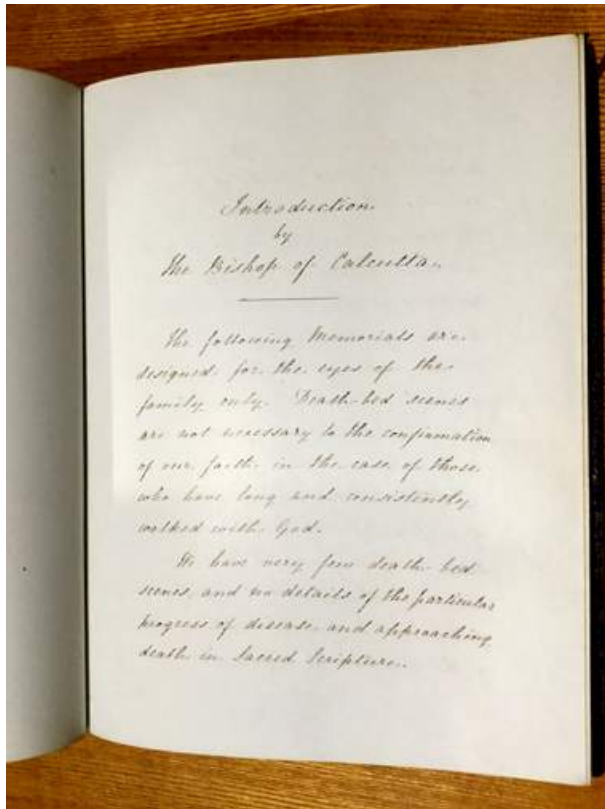 Introduction
by
The Bishop of Calcutta.
The following Memorials are
designed for the eyes of the
family only. Death-bed scenes
are not necessary to the confirmation
of our faith in the case of those
who have long and consistently
walked with God.
We have very few death-bed
scenes, and no details of the particular
progress of disease and approaching
death in Sacred Scripture.